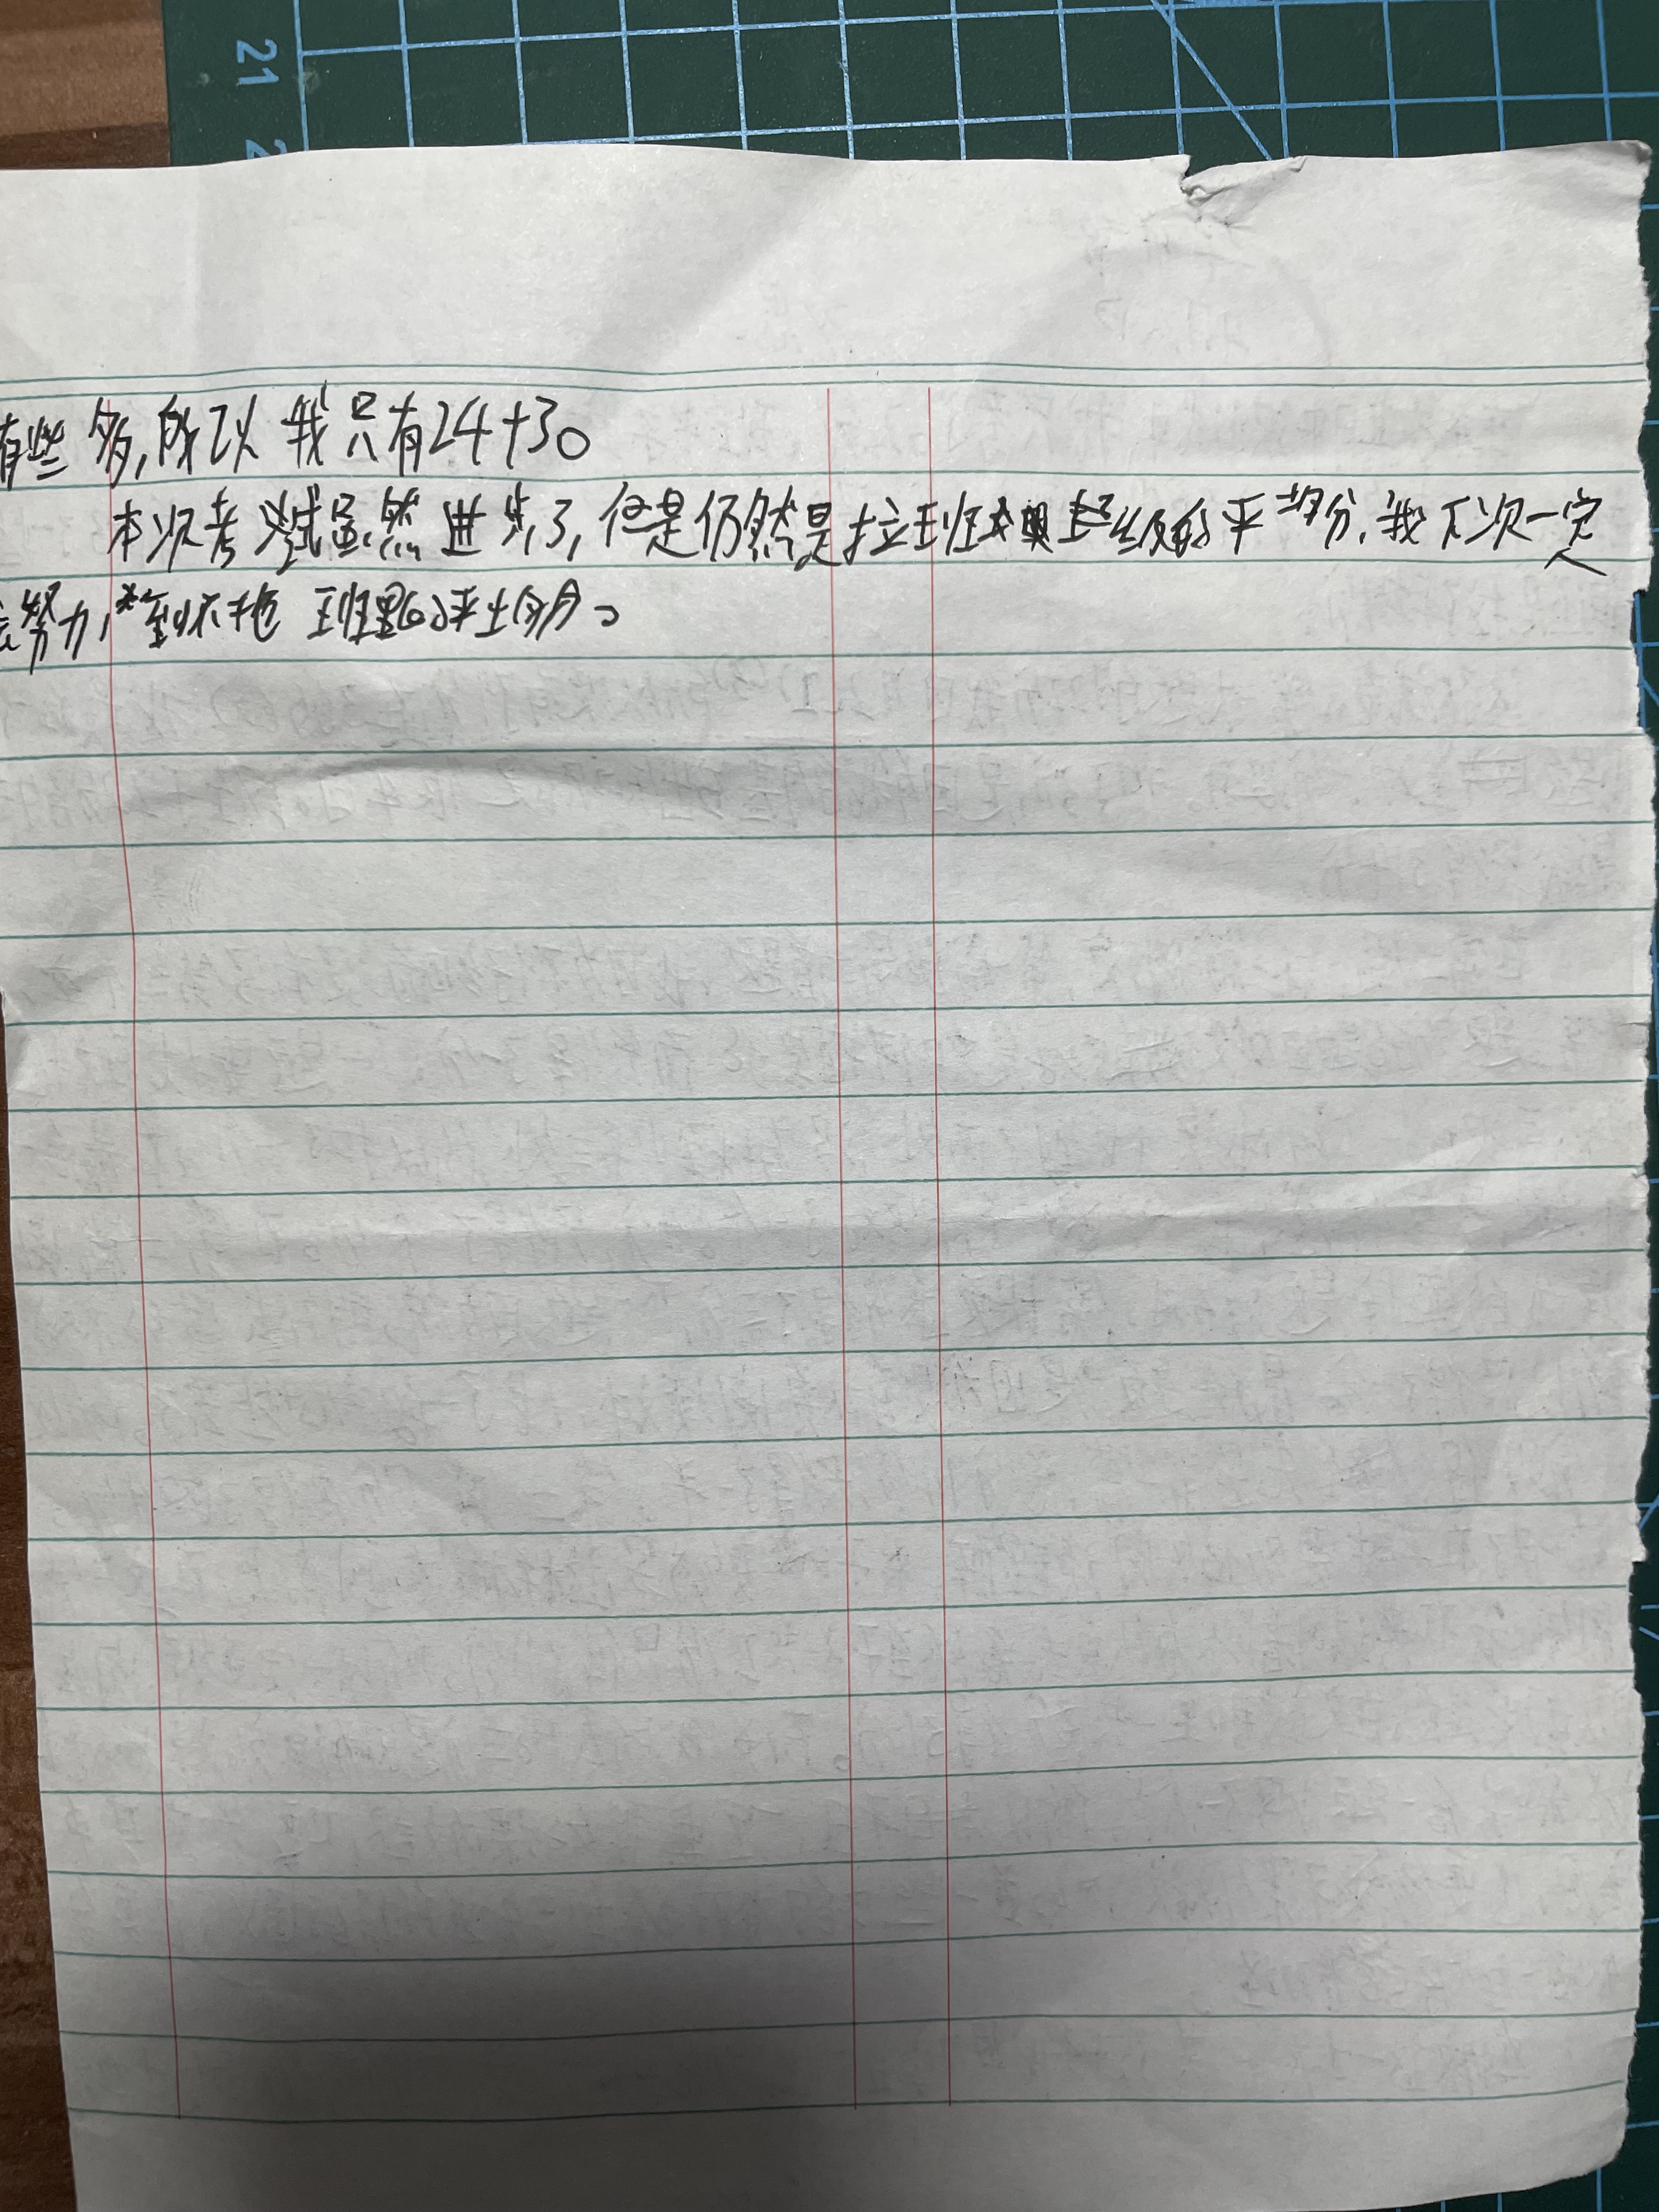 21
2
有些多,所以我只有24+30
本次考试虽然进步了,但是仍然是拉班级的平均分.我下次一定
会努力,争到不拖班里的平均分。